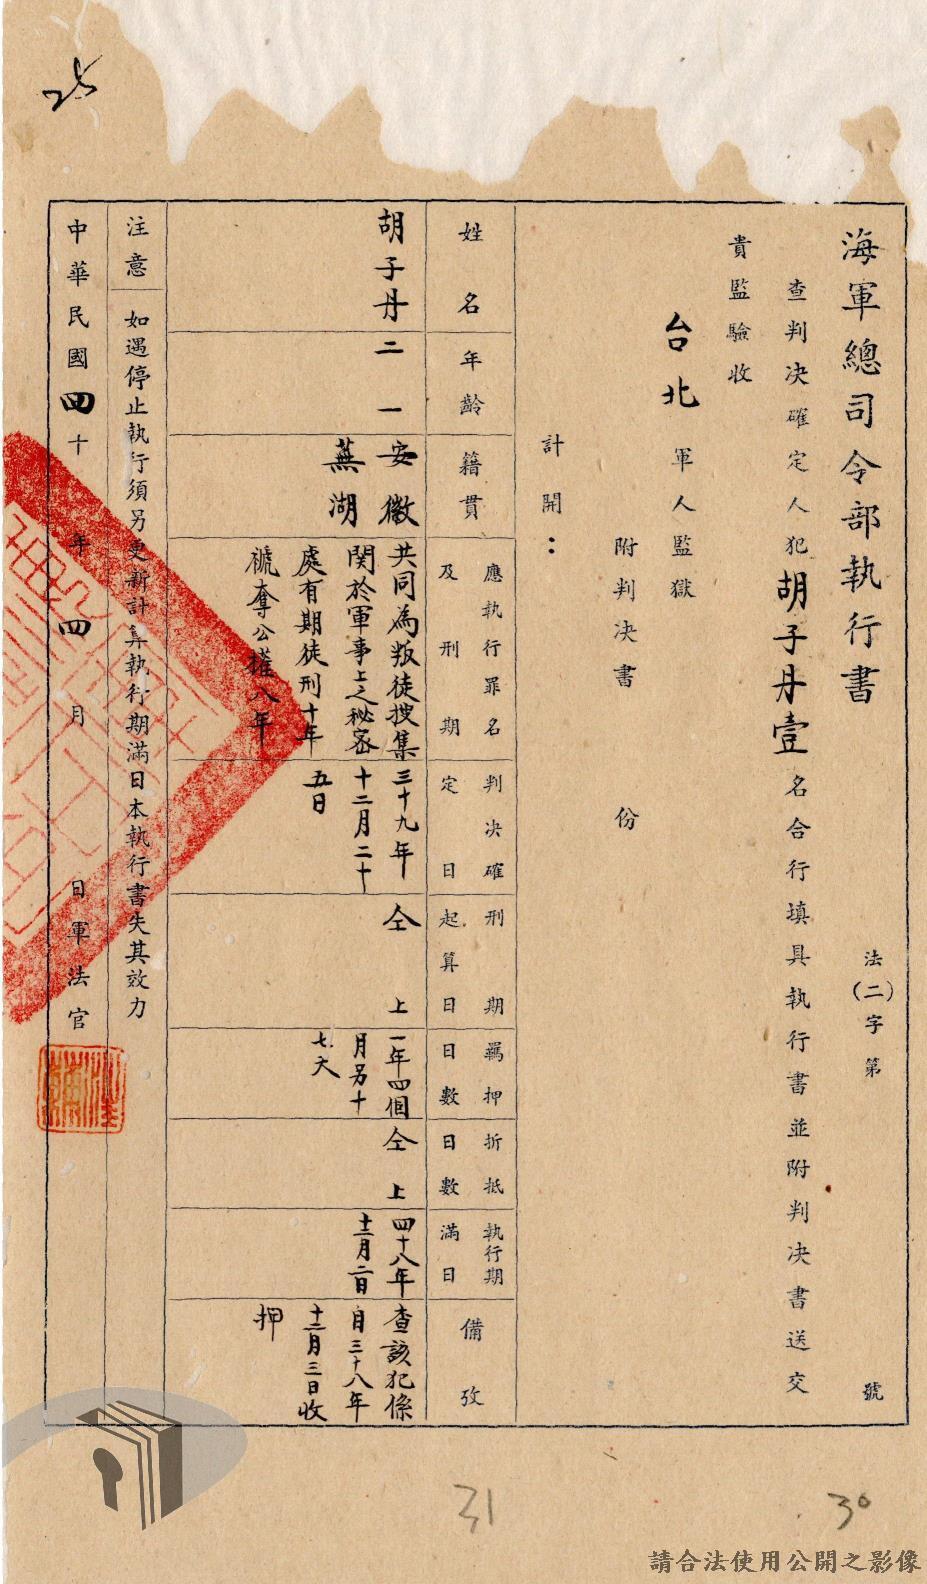 海軍總司令部執行書
法(二)字第 號
查判決確定人犯胡子丹壹名合行填具執行書並附判決書送交
貴監驗收
台北軍人監獄
附判決書 份
計開：
姓名
年齡
籍貫
應執行罪名及刑期
判決確定日
刑期起算日
羈押日數
折抵日數
執行期滿日
備攷
胡子丹
二一
安徽
蕪湖
共同為叛徒搜集
關於軍事上之秘密
處有期徒刑十年
褫奪公權八年
三十九年
十二月二十
五日
仝上
一年四個
月另十
七天
仝上
四十八年
十二月二日
查該犯係
自三十八年
十二月三日收
押
注意
如遇停止執行須另更新計算執行期滿日本執行書失其效力
中華民國四十年四月 日軍法官
31
30
請合法使用公開之影像